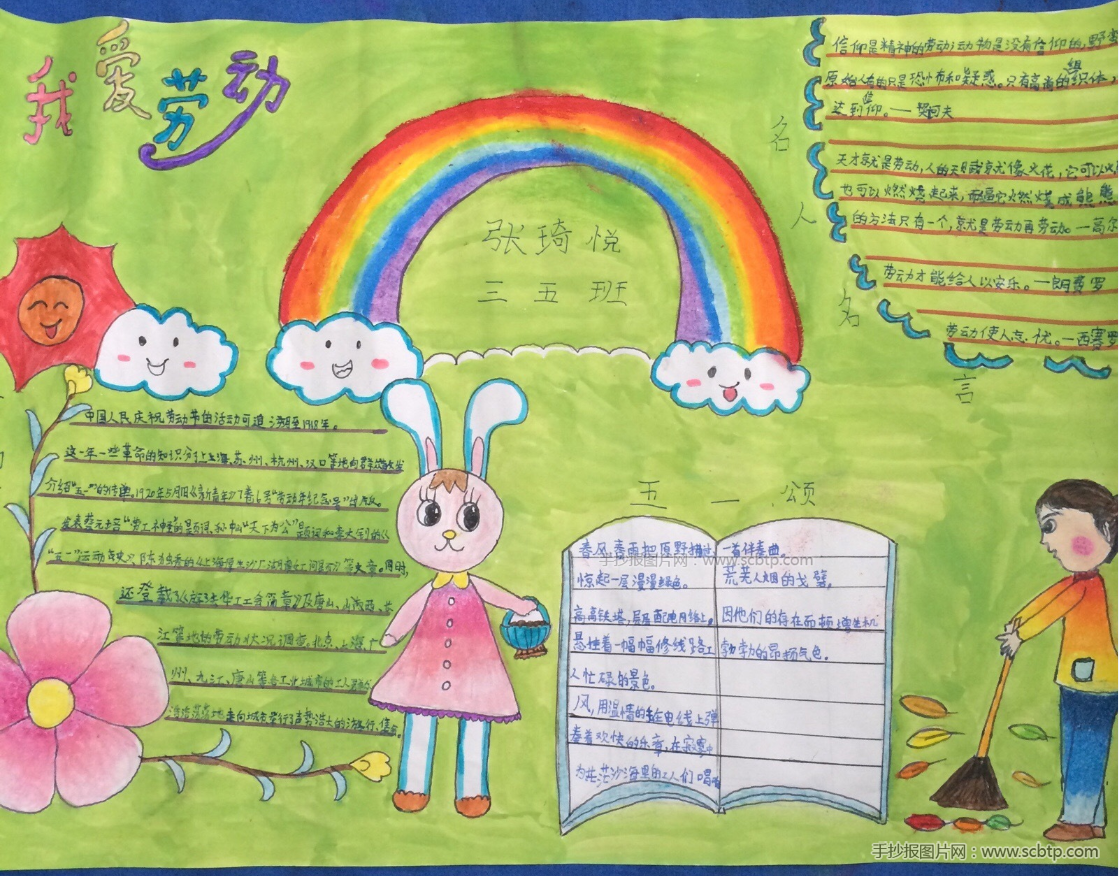 我爱劳动
信仰是精神的劳动;动物是没有信仰的,野
原始人有的只是恐怖和疑惑。只有高尚的组织体,
达到信仰。——契诃夫
天才就是劳动,人的天赋就像火花,它可以
也可以燃烧起来,而逼它燃烧成熊
的方法只有一个,就是劳动再劳动。—高尔
劳动才能给人以安乐。—朗费罗
劳动使人忘忧。—西塞罗
名人名言
张琦悦
三五班
中国人民庆祝劳动节的活动可追溯至1918年。
这一年一些革命的知识分子在上海、苏州、杭州、汉口等地向群众散发
介绍“五一”的传单。1920年5月1日《新青年》7卷6号“劳动节纪念号”
发表蔡元培“劳工神圣”的题词,孙中山“天下为公”题词和
“五一”运动
还登载
江等地的劳动状况调查,北京、上海、广
州、九江、唐山等各工业城市的工人群众
走向城市举行了声势浩大的游行、集会
五一颂
春风,春雨把原野描过
惊起一层漫漫绿色。
高高铁塔,层层配电网络上。
悬挂着一幅幅修线路工
人忙碌的景色。
风,用温情的手在电线上弹
奏着欢快的乐章,在寂寥中
为茫茫沙海里的工人们唱响
一首伴奏曲。
荒芜人烟的戈壁,
因他们的存在而顿增生机
勃勃的昂扬气色。
手抄报图片网:www.scbtp.com
手抄报图片网:www.scbtp.com